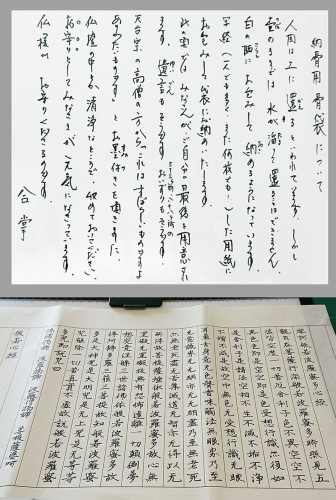 納骨用骨袋について
人間は土に還るといわれています。しかし
壺のままでは水が溜って還ることはできない。
白の晒にお包みして納めるようになっています。
写経(一人でも多く、また何枚でも)した用紙に
お包みして袋にお納めいたします。
みなさんがご自分の最後を用意され
ます。遺言も
天台宗の高僧の方からこれはすばらしいものですよ
ありがたいものですとお墨付きを頂きました。
仏壇の中など清浄なところに収めておいてください。
お守りとしてみなさまが元気になさっています。
仏様がお守りくださるのです。
合掌
摩訶般若波羅蜜多心経
観自在菩薩行深般若波羅蜜多時照見五
蘊皆空度一切苦厄舎利子色不異空空不
異色色即是空空即是色受想行識亦復如
是舎利子是諸法空相不生不滅不垢不浄
不増不減是故空中無色無受想行識無眼
耳鼻舌身意無色声香味触法無眼界乃至
無意識界無無明亦無無明尽乃至無老死
亦無老死尽無苦集滅道無智亦無得以無
所得故菩提薩埵依般若波羅蜜多故心無
罣礙無罣礙故無有恐怖遠離一切顛倒夢
想究竟涅槃三世諸仏依般若波羅蜜多故
得阿耨多羅三藐三菩提故知般若波羅蜜
多是大神呪是大明呪是無上呪是無等等
呪能除一切苦真実不虚故説般若波羅蜜
多呪即説呪曰
羯諦羯諦 波羅羯諦 波羅僧羯諦
菩提薩婆訶
般若心経